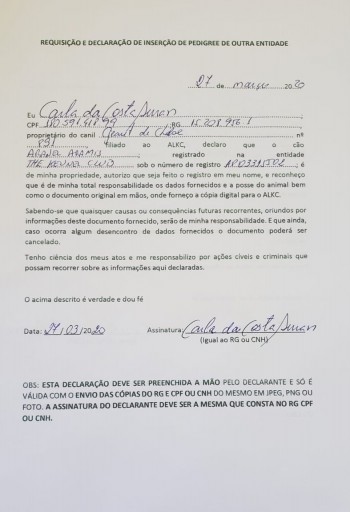 REQUISIÇÃO E DECLARAÇÃO DE INSERÇÃO DE PEDIGREE DE OUTRA ENTIDADE
27 de março 2020
Eu Carla da Costa
CPF RG
proprietário do canil nº
filiado ao ALKC, declaro que o cão
registrado na entidade
THE KENNEL CLUB sob o número de registro é
de minha propriedade, autorizo que seja feito o registro em meu nome, e reconheço
que é de minha total responsabilidade os dados fornecidos e a posse do animal bem
como o documento original em mãos, onde forneço a cópia digital para o ALKC.
Sabendo-se que quaisquer causas ou consequências futuras recorrentes, oriundos por
informações deste documento fornecido, serão de minha responsabilidade. E que ainda,
caso ocorra algum desencontro de dados fornecidos o documento poderá ser
cancelado.
Tenho ciência dos meus atos e me responsabilizo por ações cíveis e criminais que
possam recorrer sobre as informações aqui declaradas.
O acima descrito é verdade e dou fé
Data: 27/03/2020 Assinatura Carla da Costa
(igual ao RG ou CNH)
OBS: ESTA DECLARAÇÃO DEVE SER PREENCHIDA A MÃO PELO DECLARANTE E SÓ É
VÁLIDA COM O ENVIO DAS CÓPIAS DO RG E CPF OU CNH DO MESMO EM JPEG, PNG OU
FOTO. A ASSINATURA DO DECLARANTE DEVE SER A MESMA QUE CONSTA NO RG CPF
OU CNH.